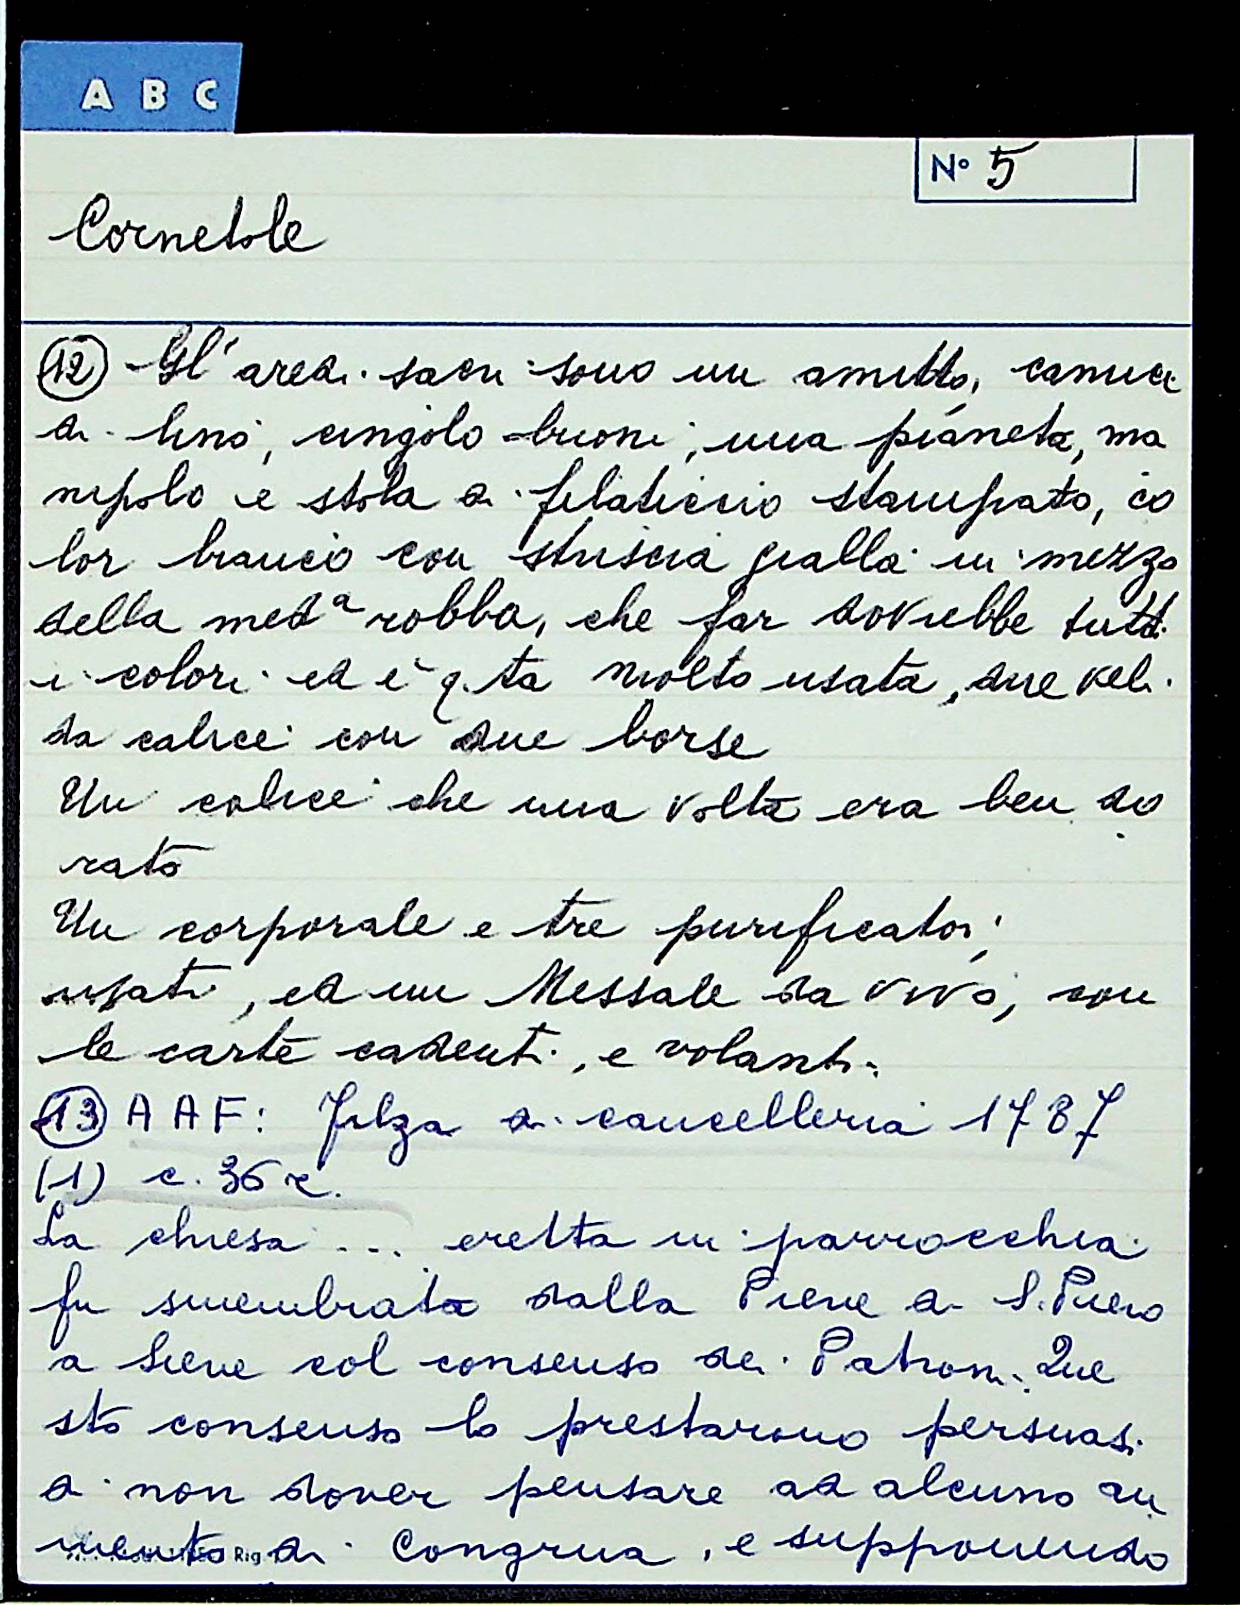 A B C
N° 5
Cornetole
12 Gl' aredi sacri sono un amitto, camice
di lino, cingolo buoni, una pianeta, ma
nipolo e stola di filaticcio stampato, co
lor bianco con striscia gialla in mezzo
della med.a robba, che far dovrebbe tutti
i colori ed è q.ta molto usata, due veli
da calice con due borse
Un calice che una volta era ben do
rato
Un corporale e tre purificatoi
usati, ed un Messale da vivo, con
le carte cadenti, e volanti.
13 AAF: Filza di cancelleria 1787
(1) c. 36 r.
La chiesa ... eretta in parrocchia
fu smembrata dalla Pieve di S. Piero
a Sieve col consenso dei Patroni. Que
sto consenso lo prestarono persuasi
di non dover pensare ad alcuno au
mento di Congrua, e supponendo
Rig.